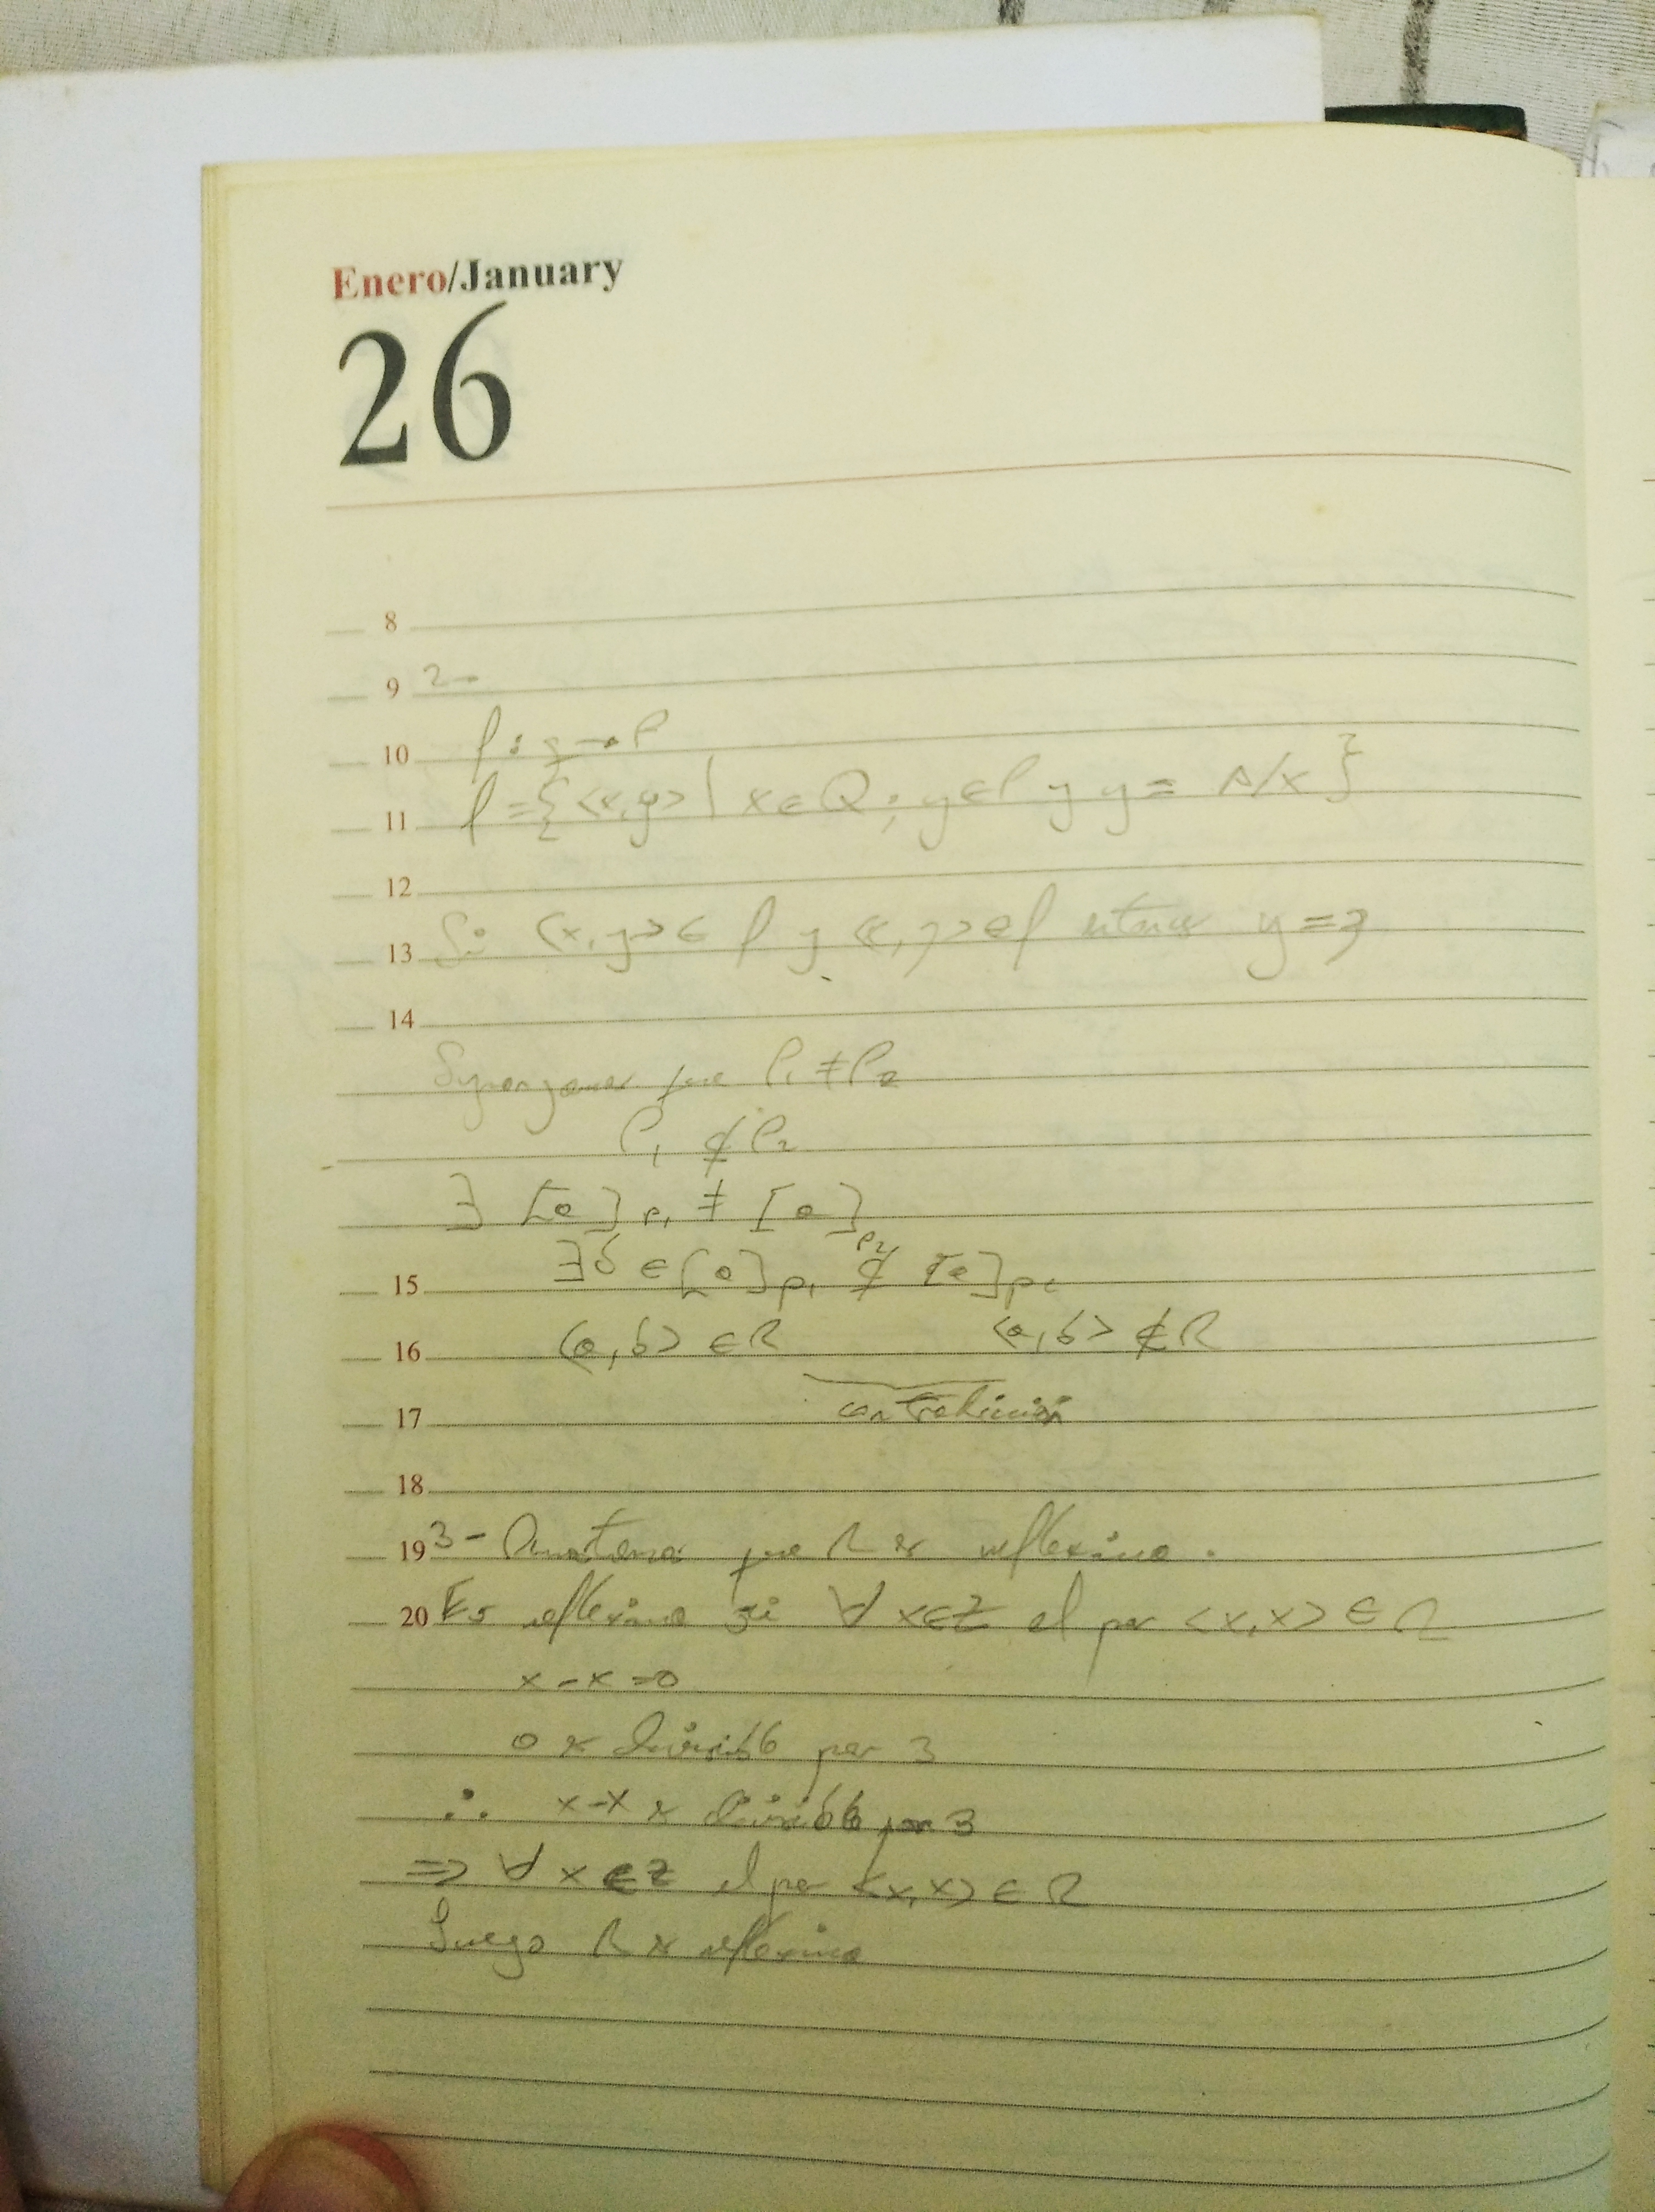 Enero/January
26
8
9 2-
10 f: Q → P
11 f = {<x,y> | x ∈ Q ; y ∈ P y y = A/x }
12
13 Si <x,y> ∈ f y <x,z> ∈ f entonces y = z
14
Supongamos que P₁ ≠ P₂
P₁ ⊄ P₂
∃ [a]P₁ ≠ [a]P₂
15 ∃b ∈ [a]P₁ ∉ [a]P₂
16 <a,b> ∈ R <a,b> ∉ R
17 contradicción
18
19 3- Demostrar que R es reflexiva.
20 Es reflexiva si ∀ x∈Z el par <x,x> ∈ R
x-x=0
0 es divisible por 3
∴ x-x es divisible por 3
⇒ ∀ x ∈ Z el par <x,x> ∈ R
Luego R es reflexiva